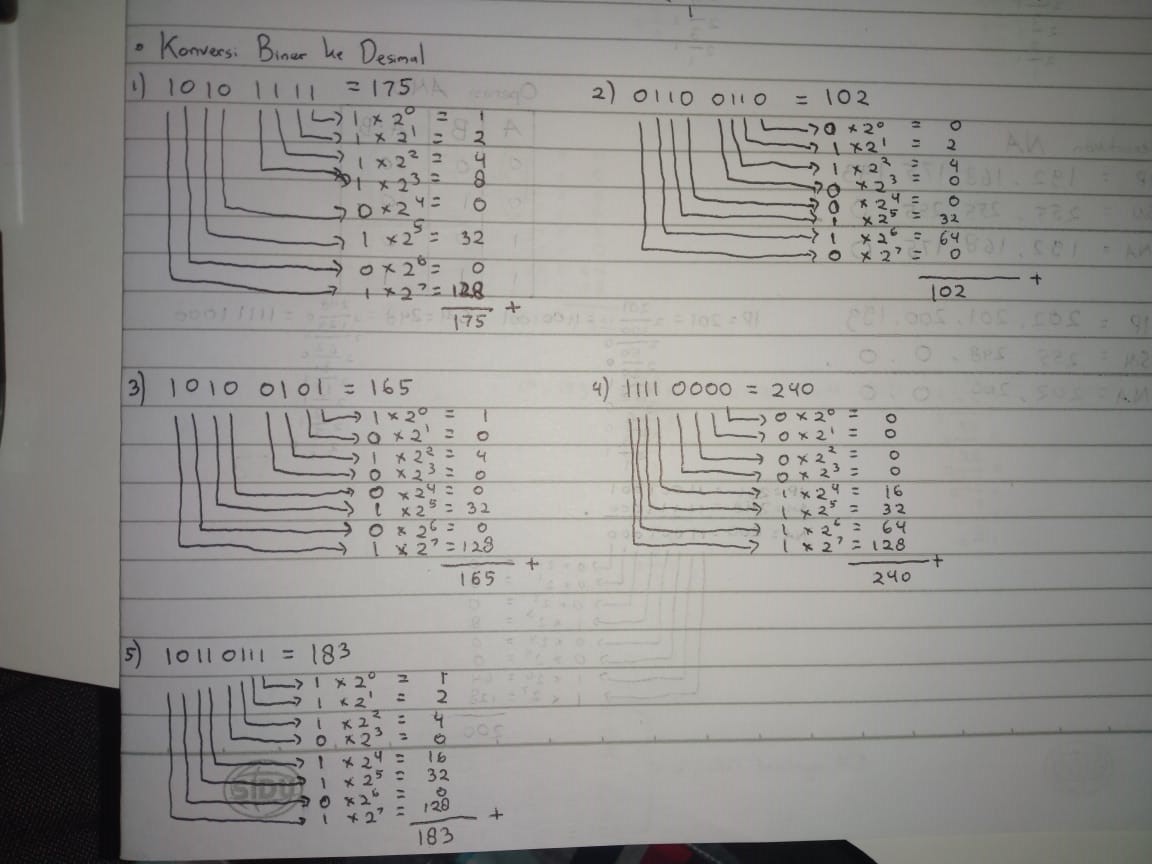 • Konversi Biner ke Desimal
1) 1010 1111 = 175
1 x 2⁰ = 1
1 x 2¹ = 2
1 x 2² = 4
1 x 2³ = 8
0 x 2⁴ = 0
1 x 2⁵ = 32
0 x 2⁶ = 0
1 x 2⁷ = 128
+
175
2) 0110 0110 = 102
0 x 2⁰ = 0
1 x 2¹ = 2
1 x 2² = 4
0 x 2³ = 0
0 x 2⁴ = 0
1 x 2⁵ = 32
1 x 2⁶ = 64
0 x 2⁷ = 0
+
102
3) 1010 0101 = 165
1 x 2⁰ = 1
0 x 2¹ = 0
1 x 2² = 4
0 x 2³ = 0
0 x 2⁴ = 0
1 x 2⁵ = 32
0 x 2⁶ = 0
1 x 2⁷ = 128
+
165
4) 1111 0000 = 240
0 x 2⁰ = 0
0 x 2¹ = 0
0 x 2² = 0
0 x 2³ = 0
1 x 2⁴ = 16
1 x 2⁵ = 32
1 x 2⁶ = 64
1 x 2⁷ = 128
+
240
5) 10110111 = 183
1 x 2⁰ = 1
1 x 2¹ = 2
1 x 2² = 4
0 x 2³ = 0
1 x 2⁴ = 16
1 x 2⁵ = 32
0 x 2⁶ = 0
1 x 2⁷ = 128
+
183
SIDU